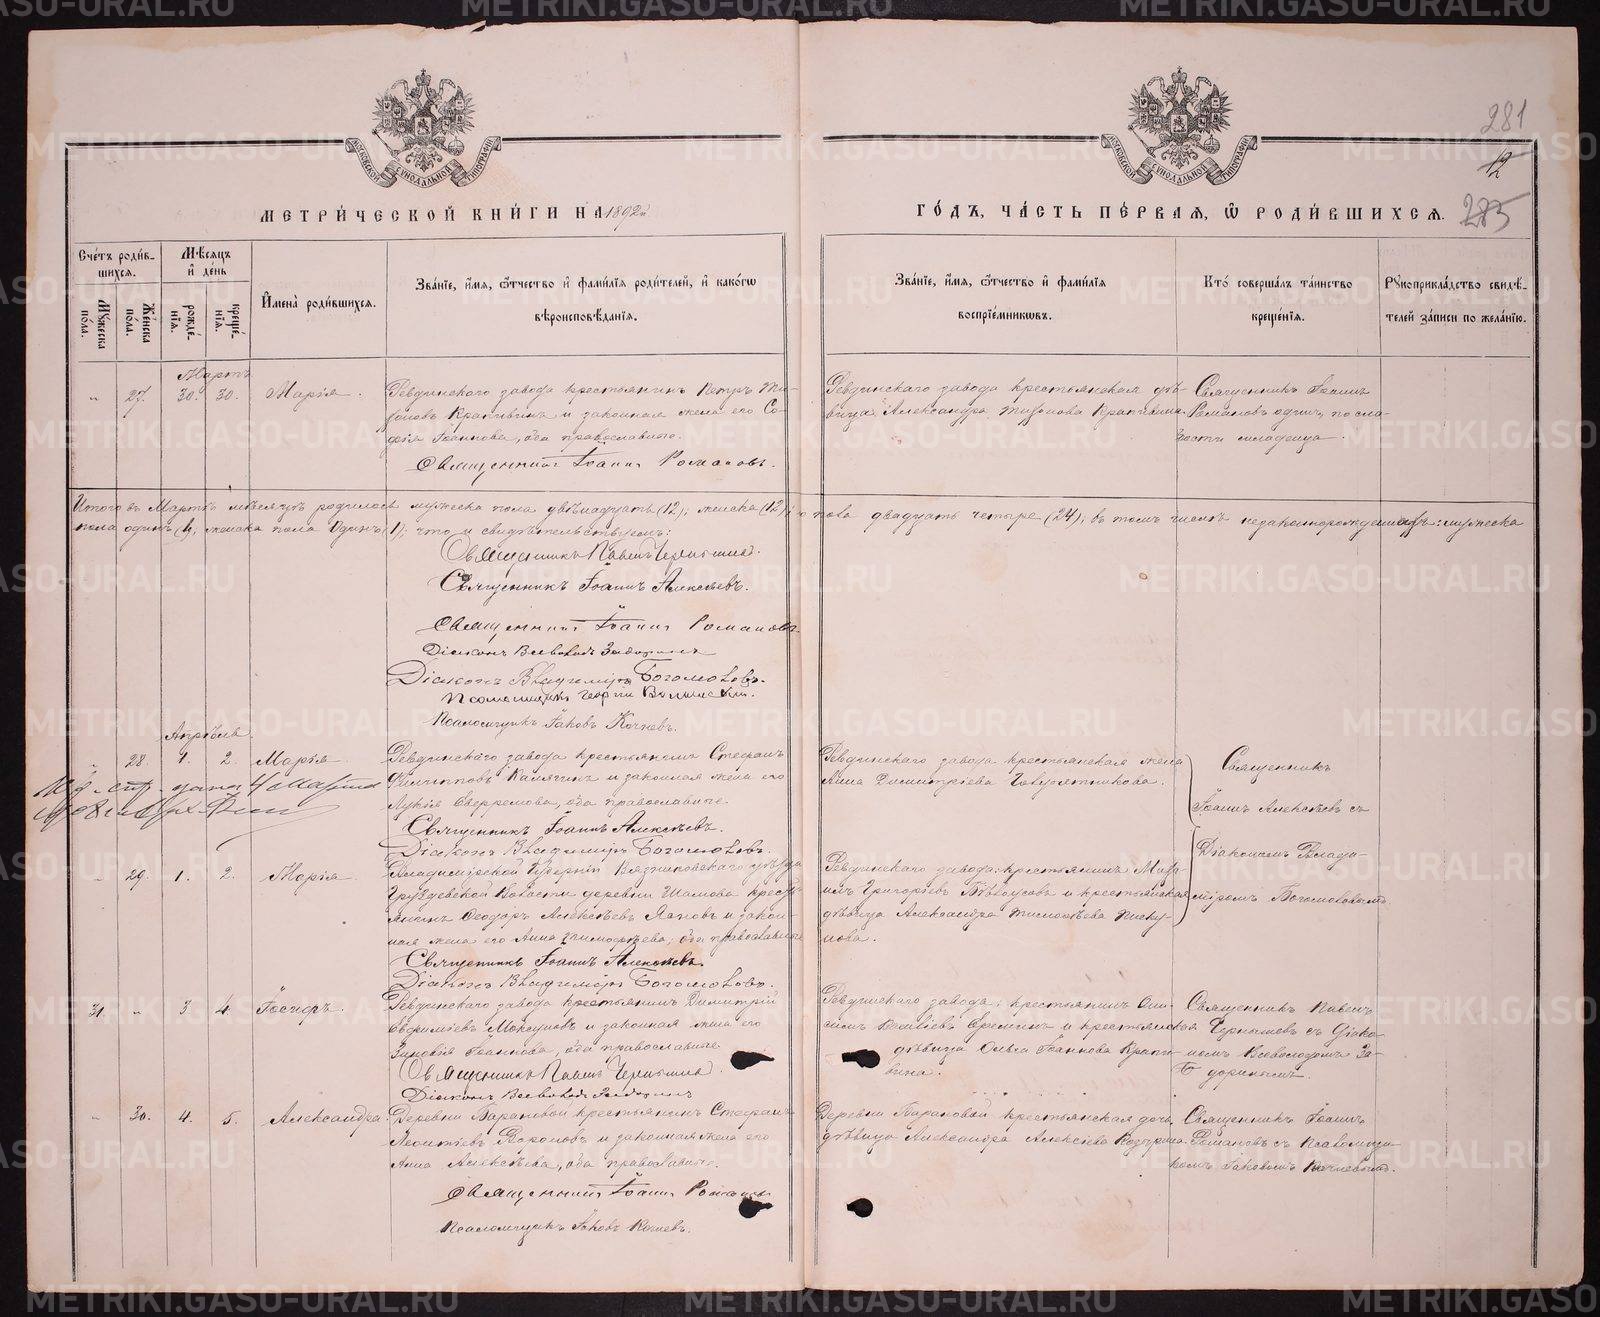 METRIKI.GASO-URAL.RU
281
12
283
МОСКОВСКОЙ СѴНОДАЛЬНОЙ ТИПОГРАФІИ
МОСКОВСКОЙ СѴНОДАЛЬНОЙ ТИПОГРАФІИ
МЕТРИ́ЧЕСКОЙ КНИ́ГИ НА 1892й
ГО́ДЪ, ЧА́СТЬ ПЕ́РВАЯ, Ѿ РОДИ́ВШИХСЯ.
Сче́тъ роди́в-
шихся.
Мѣ́сяцъ
и҆ де́нь
Мꙋ́жеска
по́ла.
Же́нска
по́ла.
рожде́-
нїя.
креще́-
нїя.
И҆мена̀ роди́вшихся.
Зва́нїе, и҆́мя, ѻ҆́тчество и҆ фами́лїя роди́телей, и҆ како́гѡ
вѣроисповѣ́данїя.
Зва́нїе, и҆́мя, ѻ҆́тчество и҆ фами́лїя
воспрїе́мникѡвъ.
Кто̀ соверша́лъ та́инство
креще́нїя.
Рꙋкоприкла́дство свидѣ́-
телей за́писи по жела́нїю.
Мартъ
27. 30. 30. Марія.
Ревдинскаго завода крестьянинъ Петръ Ти-
хоновъ Крапивинъ и законная жена его Со-
фія Іоаннова, оба православные.
Священникъ Іоаннъ Романовъ.
Ревдинскаго завода крестьянская дѣ-
вица Александра Тихонова Крапивина.
Священникъ Іоаннъ
Романовъ одинъ, по сла-
бости младенца.
Итого въ Мартѣ мѣсяцѣ родилось мужеска пола двѣнадцать (12), женска (12); о пола двадцать четыре (24); въ томъ числѣ незаконнорожденныхъ: мужеска
пола одинъ (1), женска пола одинъ (1), что и свидѣтельствуемъ:
Священникъ Павелъ Чернышевъ.
Священникъ Іоаннъ Алексѣевъ.
Священникъ Іоаннъ Романовъ
Діаконъ Всеволодъ Задоринъ
Діаконъ Владиміръ Богомоловъ.
Псаломщикъ Георгій
Псаломщикъ Іаковъ Кочневъ.
Апрѣль.
28. 1. 2. Марія.
Ревдинскаго завода крестьянинъ Стефанъ
Филипповъ и законная жена его
Лукія Евфремова, оба православные.
Священникъ Іоаннъ Алексѣевъ.
Діаконъ Владиміръ Богомоловъ.
Ревдинскаго завода крестьянская жена
Анна Димитріева
Священникъ
Іоаннъ Алексѣевъ съ
Діакономъ Влади-
міромъ Богомоловымъ.
29. 1. 2. Марія.
Владимірской губерніи Вязниковскаго уѣзда
волости деревни кресть-
янинъ Ѳеодоръ Алексѣевъ и закон-
ная жена его Анна Тимоѳеева, оба православные
Священникъ Іоаннъ Алексѣевъ.
Діаконъ Владиміръ Богомоловъ.
Ревдинскаго завода: крестьянинъ Миха-
илъ Григорьевъ Бѣлоусовъ и крестьянская
дѣвица Александра Тимоѳеева Писку-
нова.
31. 3 4. Іосифъ.
Ревдинскаго завода крестьянинъ Димитрій
и законная жена его
Зиновія Іоаннова, оба православные
Священникъ Павелъ Чернышевъ.
Діаконъ Всеволодъ Задоринъ
Ревдинскаго завода: крестьянинъ Они-
симъ Васильевъ Ереминъ и крестьянская
дѣвица Ольга Іоаннова Крапи-
вина.
Священникъ Павелъ
Чернышевъ съ Діако-
номъ Всеволодомъ За-
доринымъ.
30. 4. 5. Александра.
Деревни Барановой крестьянинъ Стефанъ
Леонтьевъ и законная жена его
Анна Алексѣева, оба православные.
Священникъ Іоаннъ Романовъ
Псаломщикъ Іаковъ Кочневъ.
Деревни Барановой крестьянская дочь,
дѣвица Александра Алексѣева
Священникъ Іоаннъ
Романовъ съ Псаломщи-
комъ Іаковомъ Кочневымъ.